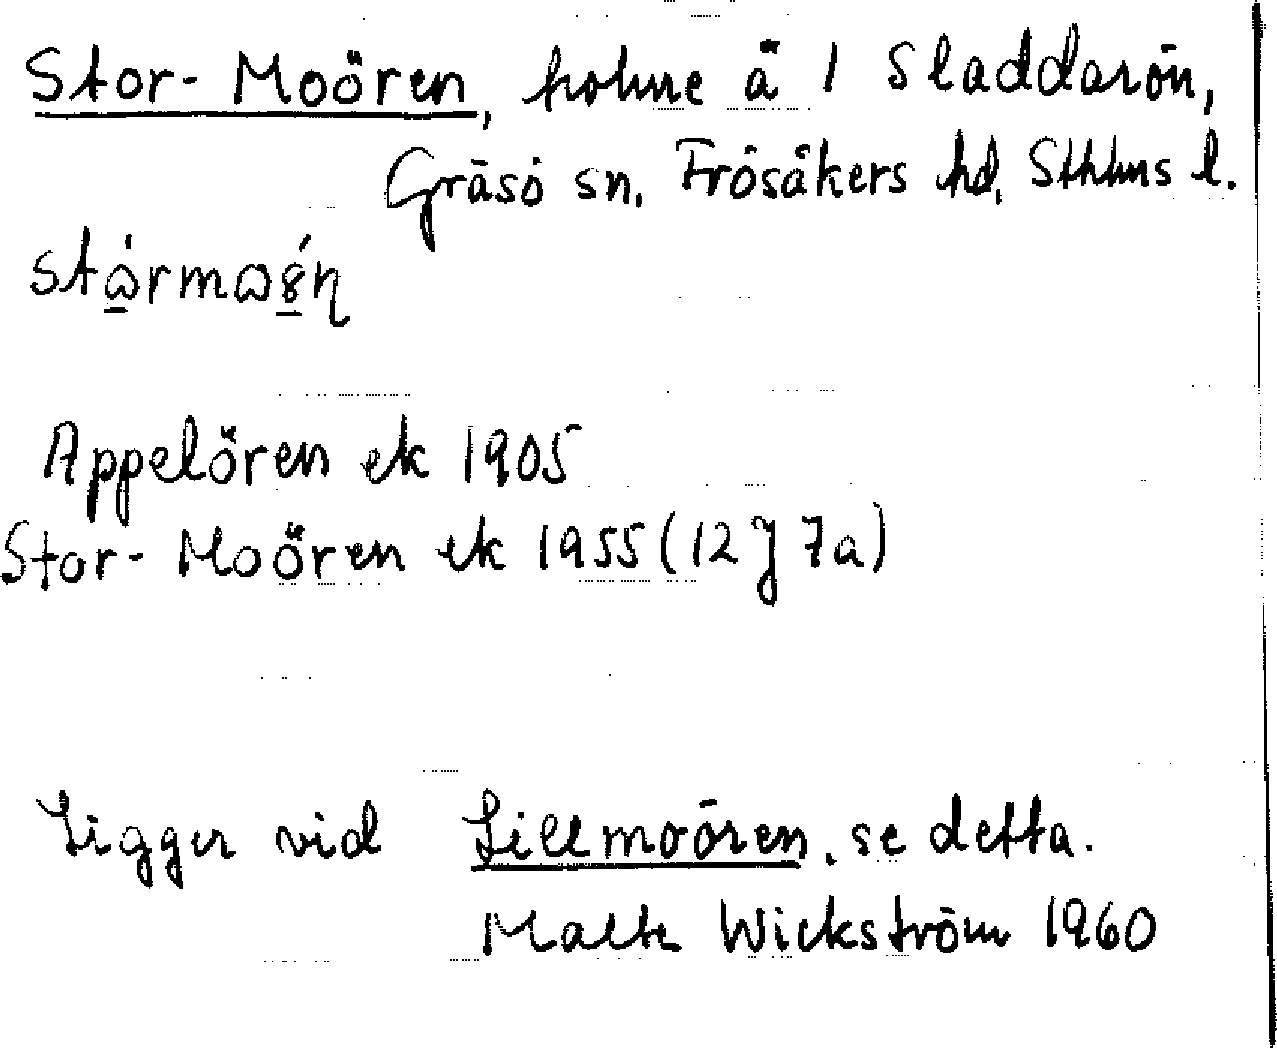 Stor-Moören, holme å 1 Sladdarön,
Gräsö sn, Frösåkers hd, Sthlms l.
Appelören ek 1905
Stor-Moören ek 1955 (12 J 7a)
Ligger vid Lillmoören, se detta.
Malte Wickström 1960